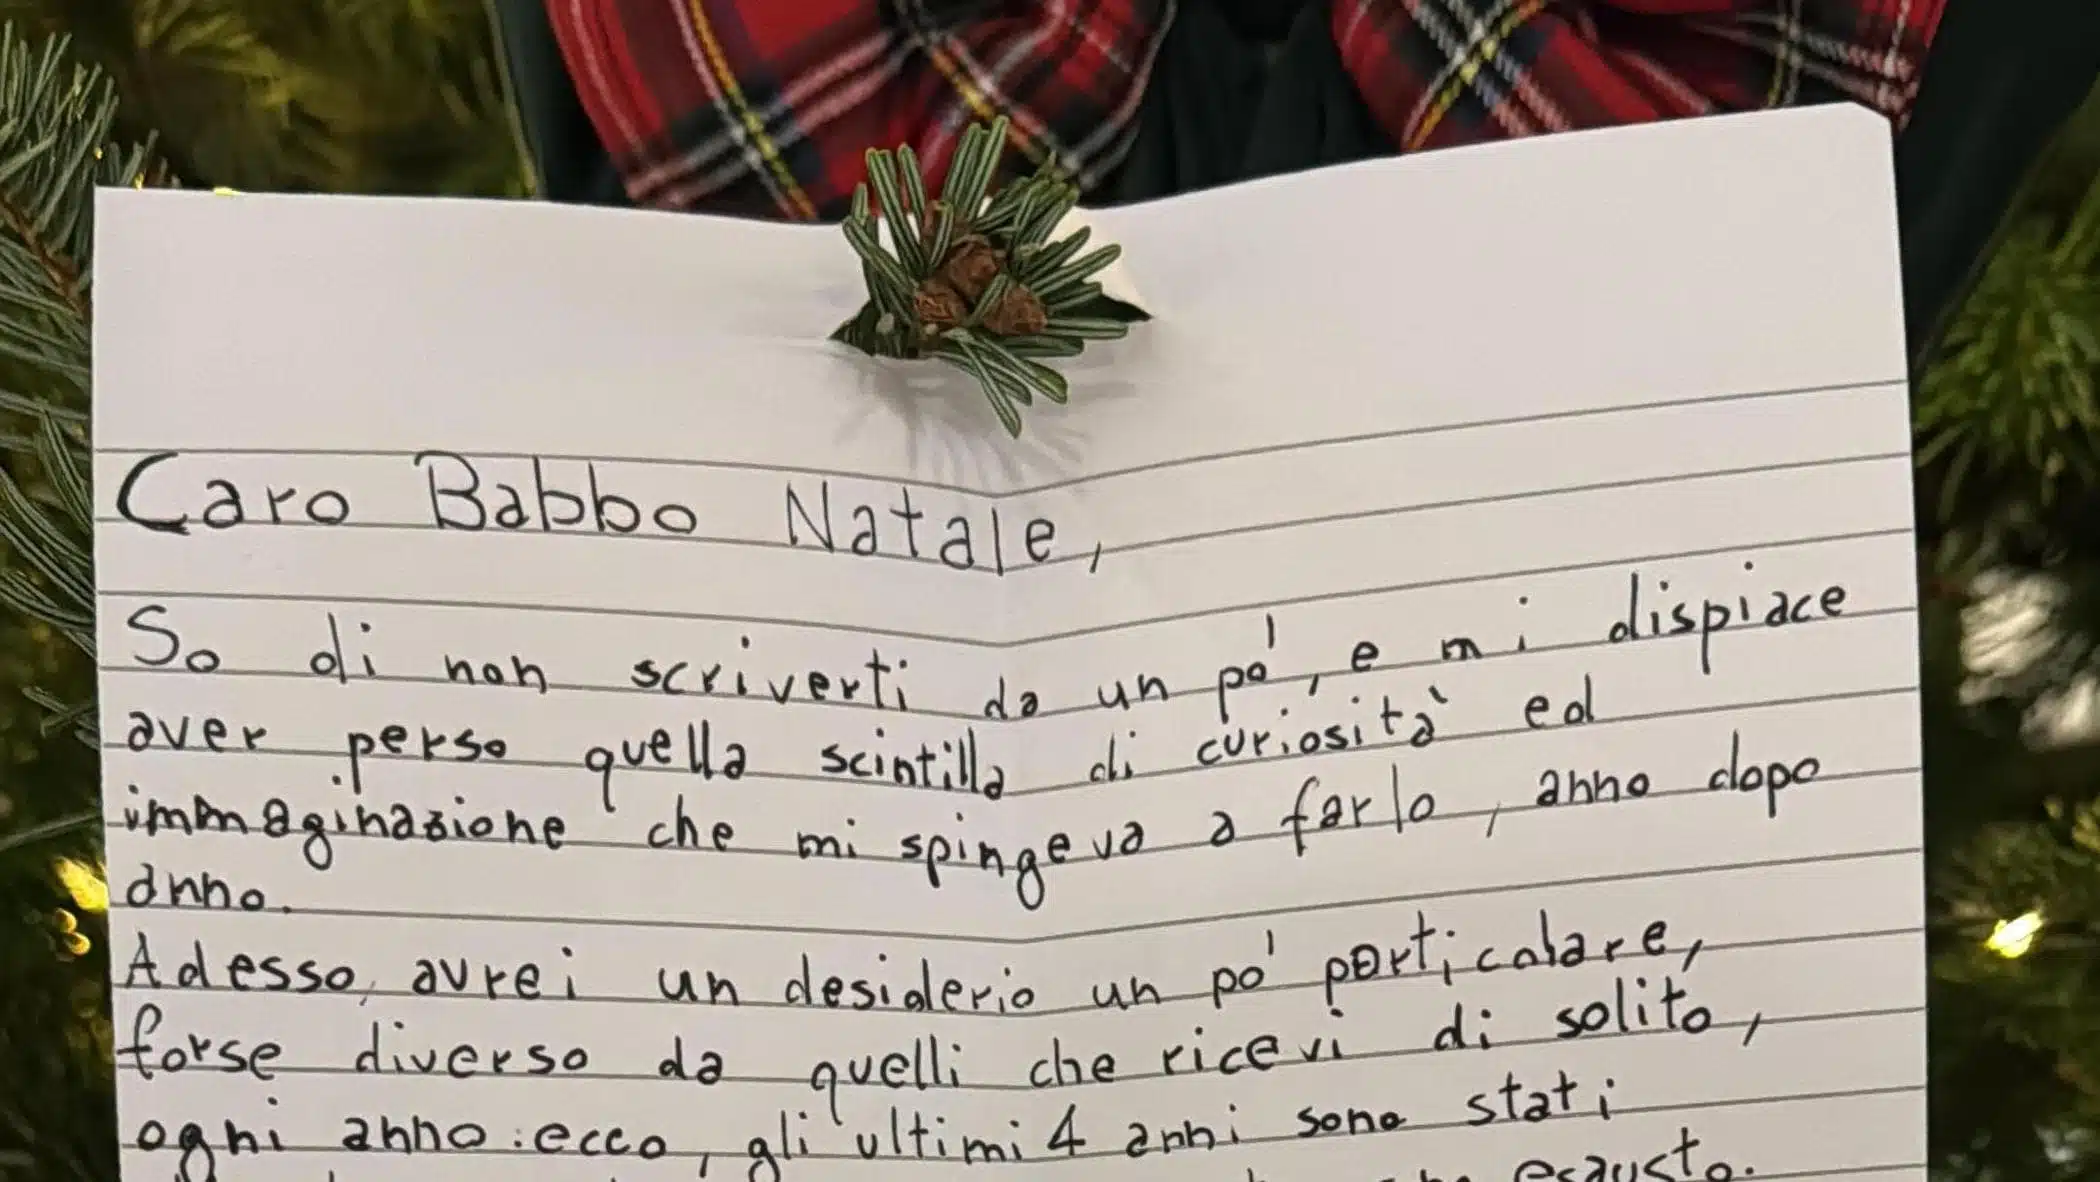 Caro Babbo Natale,
So di non scriverti da un po', e mi dispiace
aver perso quella scintilla di curiosità ed
immaginazione che mi spingeva a farlo, anno dopo
anno.
Adesso, avrei un desiderio un po' particolare,
forse diverso da quelli che ricevi di solito,
ogni anno: ecco, gli ultimi 4 anni sono stati
esausto.